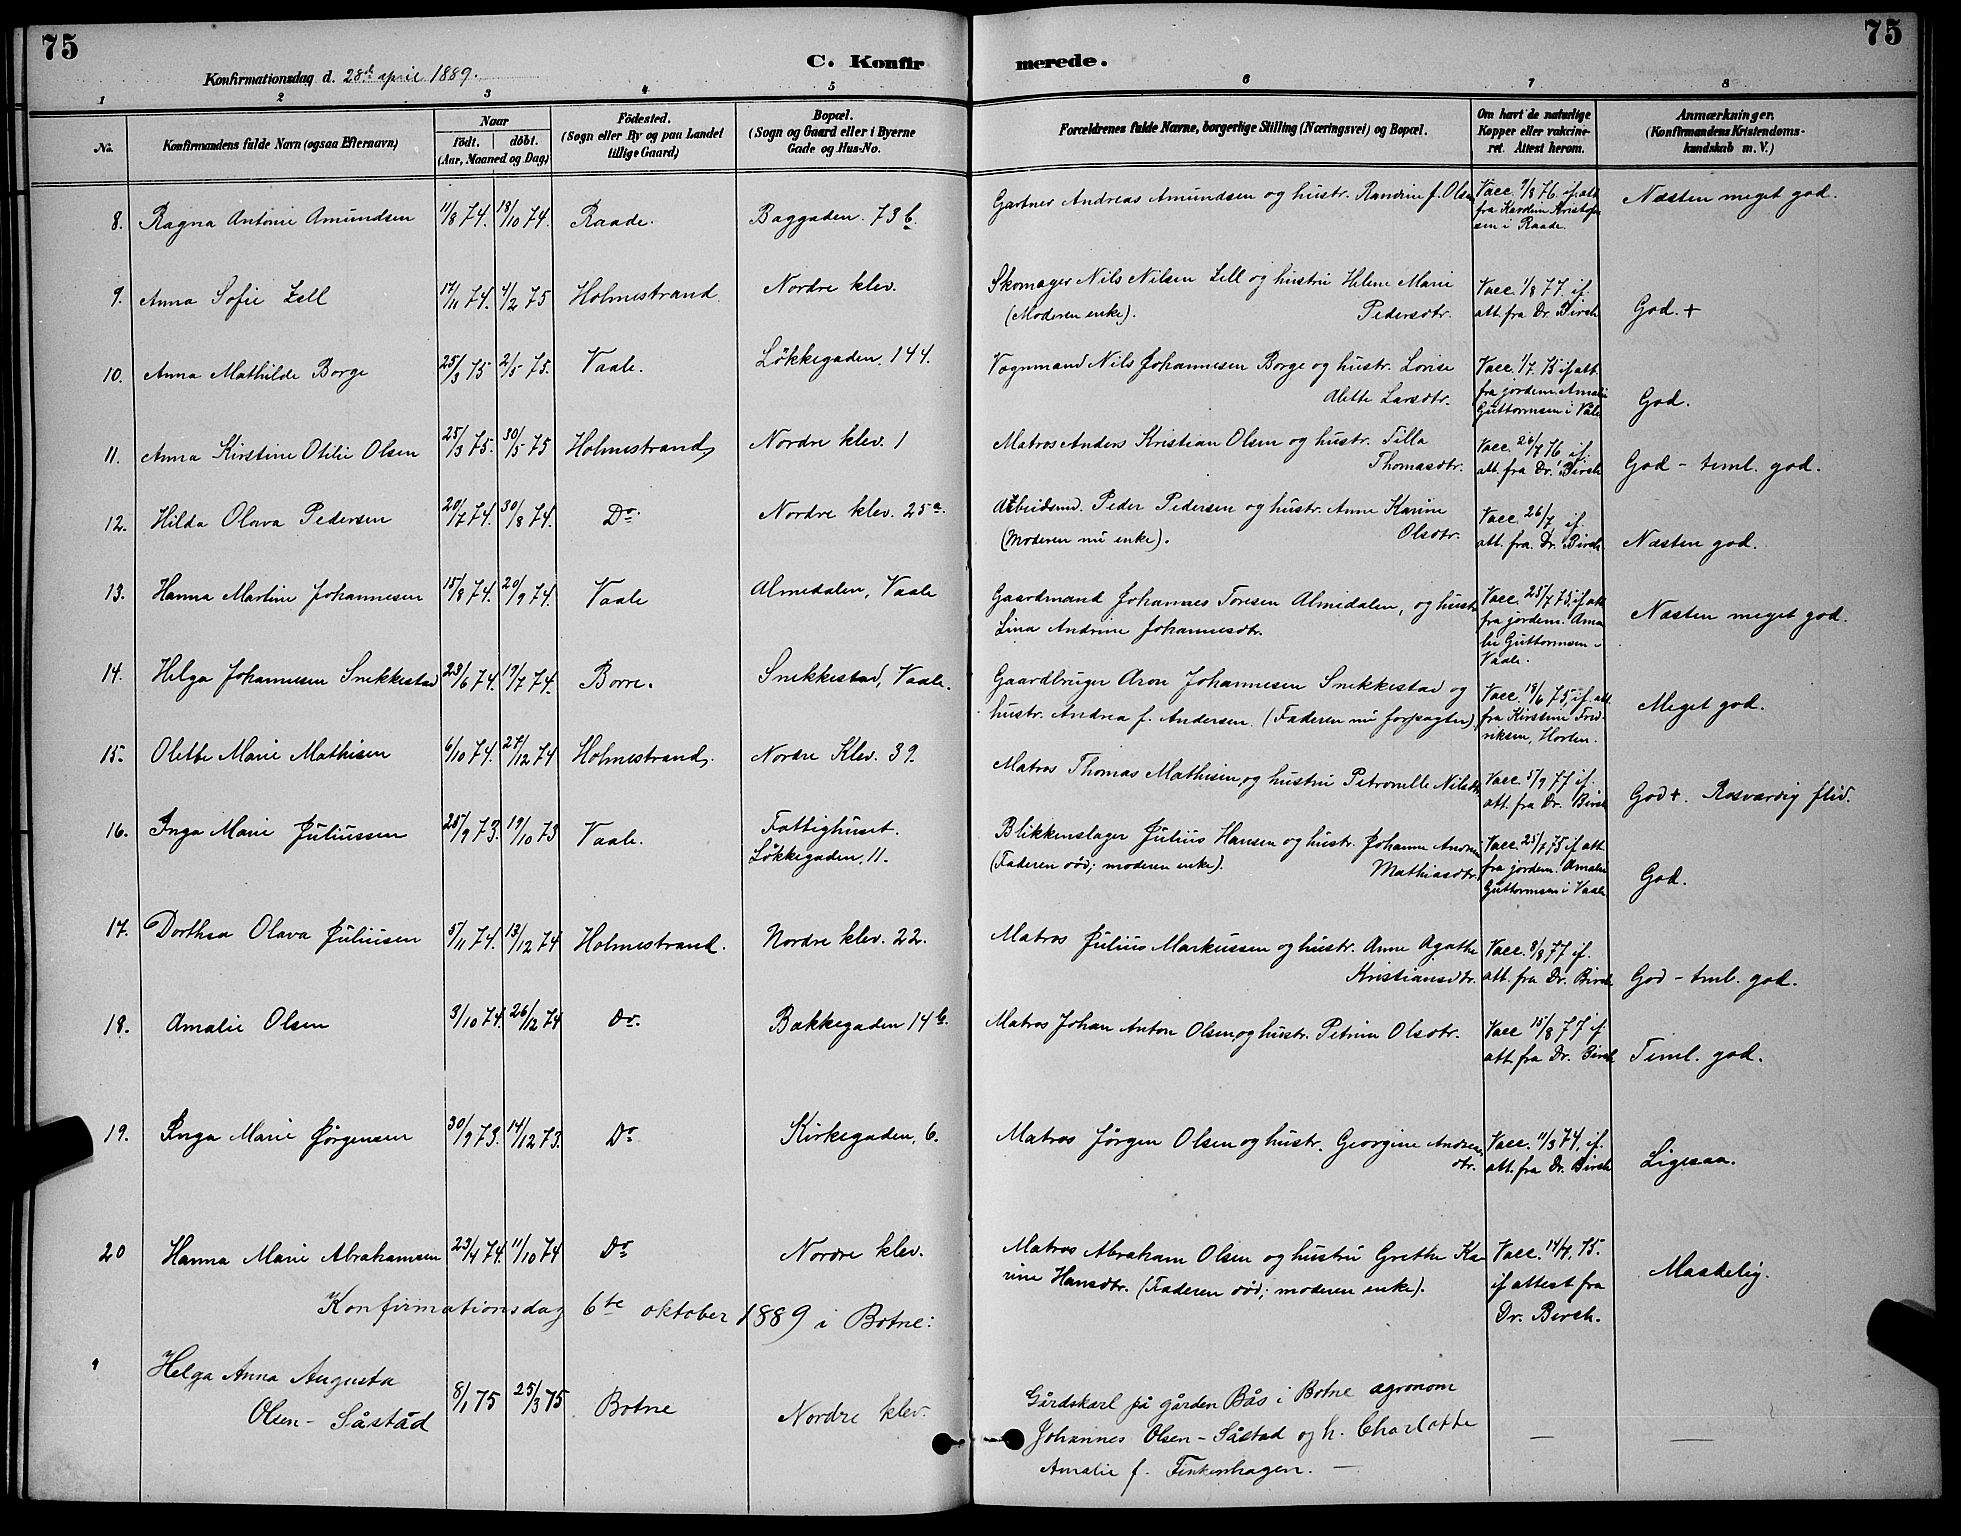 75
75
C. Konfir
merede.
Konfirmationsdag d. 28de april 1889.
1 2 3 4 5 6 7 8
No.
Konfirmandens fulde Navn (ogsaa Efternavn)
Naar
födt. döbt.
(Aar, Maaned og Dag)
Födested.
(Sogn eller By og paa Landet
tillige Gaard)
Bopæl.
(Sogn og Gaard eller i Byerne
Gade og Hus-No.
Forældrenes fulde Navne, borgerlige Stilling (Næringsvei) og Bopæl.
Om havt de naturlige
Kopper eller vakcine-
ret. Attest herom.
Anmærkninger.
(Konfirmandens Kristendoms-
kundskab m.V.)
8. Ragna Antonie Amundsen 11/8 74. 18/10 74. Raade. Baggaden. 73 b. Gartner Andreas Amundsen og hustr. Randine f. Olsen Vacc. 9/8 76 if. att.
fra Kristofer
sen i Raade. Næsten meget god.
9. Anna Sofie Zell 17/11 74. 4/2 75 Holmestrand Nordre klev. Skomager Nils Nilsen Zell og hustru Helene Marie
(Moderen enke). Pedersdtr. Vacc. 1/8 77. if.
att. fra Dr. Birch God. +
10. Anna Mathilde Borge 25/3 75 2/5 75. Vaale. Løkkegaden. 144. Vognmand Nils Johannesen Borge og hustr. Lovise
Alette Larsdtr. Vacc. 1/7. 75 if att.
fra jordem. Amalie
Guttormsen i Vale God.
11. Anna Kirstine Otilie Olsen 25/3 75. 30/5 75 Holmestrand Nordre klev. 1 Matros Anders Kristian Olsen og hustr. Tilla
Thomasdtr. Vacc. 26/7 76 if.
att. fra Dr. Birch God - teml. god.
12. Hilda Olava Pedersen 20/7 74. 30/8 74. Do. Nordre klev. 25 a. Arbeidsmd. Peder Pedersen og hustr. Anne Karine
(Moderen nu enke). Olsdtr. Vacc. 26/7, if.
att. fra. Dr. Birch. Næsten god.
13. Hanna Martine Johannesen 15/8 74. 20/9 74. Vaale Almedalen, Vaale Gaardmand Johannes Toresen Almedalen, og hustr
Lina Andrine Johannesdtr. Vacc. 25/7 75. if att
fra jordem. Ama
lie Guttormsen i
Vaale. Næsten meget god.
14. Helga Johannesen Snekkestad 23/6 74. 19/7 74. Borre. Snekkestad, Vaale. Gaardbruger Aron Johannesen Snekkestad og
hustr. Andrea f. Andersen. (Faderen nu forpagter) Vacc. 18/6 75, if. att
fra Kirstine Fred-
riksen, Horten. Meget god.
15. Olette Marie Mathisen 6/10 74. 27/12 74 Holmestrand. Nordre Klev. 39. Matros Thomas Mathisen og hustru Petronelle Nilsdtr Vacc. 5/9 77 if.
att. fra Dr. Birch God +. Rosværdig flid.
16. Inga Marie Juliussen 25/9 73. 19/10 73 Vaale. Fattighuset.
Løkkegaden, 11. Blikkenslager Julius Hansen og hustr. Johanne Andrea
(Faderen død; moderen enke). Mathiasdtr. Vacc. 25/7 75 if att.
fra jordem. Amalie
Guttormsen i Vaale God.
17. Dorthea Olava Juliusen 5/11 74. 13/12 74 Holmestrand. Nordre klev. 22. Matros Julius Markussen og hustr. Anne Agathe
Kristiansdtr. Vacc. 8/8 77 if.
att. fra Dr. Birch God - tml. god.
18. Amalie Olsen 3/10 74. 26/12 74 Do. Bakkegaden 14 b. Matros Johan Anton Olsen og hustr. Petrine Olsdtr. Vacc 15/8 77 if
att. fra Dr. Birch Teml. god.
19. Inga Marie Jørgensen 30/9 73. 14/12 73. Do Kirkegaden, 6. Matros Jørgen Olsen og hustr. Georgine Andreas
dtr. Vacc. 11/3 74, if.
att. fra Dr. Birch Ligesaa.
20 Hanna Marie Abrahamsen 23/4 74. 11/10 74 Do Nordre klev. Matros Abraham Olsen og hustru Grethe Ka
rine Hansdtr. (Faderen død; moderen enke). Vacc. 14/7. 75.
if attest fra
Dr. Birch. Maadelig.
Konfirmationsdag 6te oktober 1889 i Botne:
1 Helga Anna Augusta
Olsen - Såstad 8/1 75 25/3 75 Botne Nordre klev. Gårdskarl på gården Bås i Botne agronom
Johannes Olsen - Såstad og h. Charlotte
Amalie f. Finkenhagen. — — —